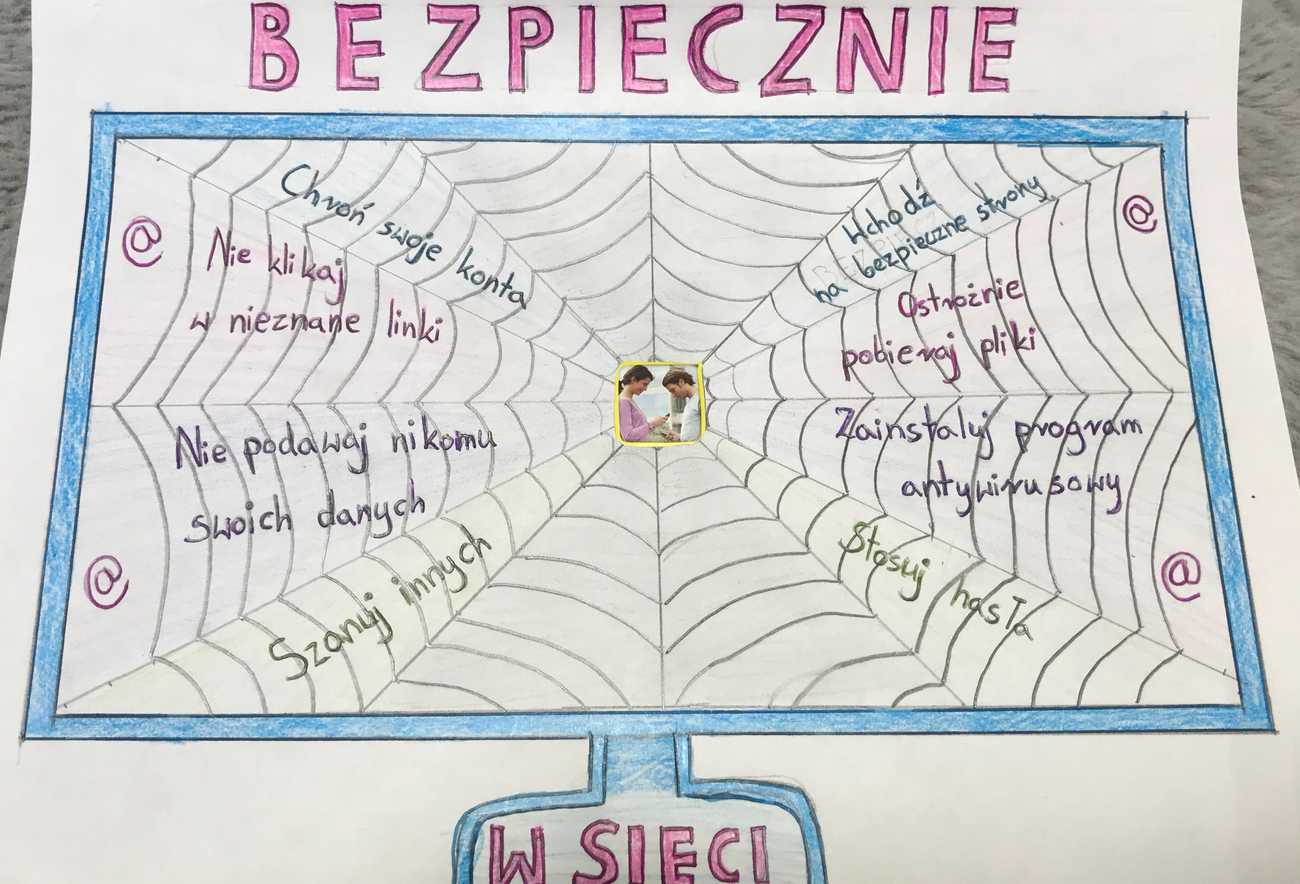 BEZPIECZNIE
Chroń swoje konta
Wchodź
na bezpieczne strony
@
@
Nie klikaj
w nieznane linki
Ostrożnie
pobieraj pliki
Nie podawaj nikomu
swoich danych
Zainstaluj program
antywirusowy
@
@
Szanuj innych
Stosuj hasła
W SIECI